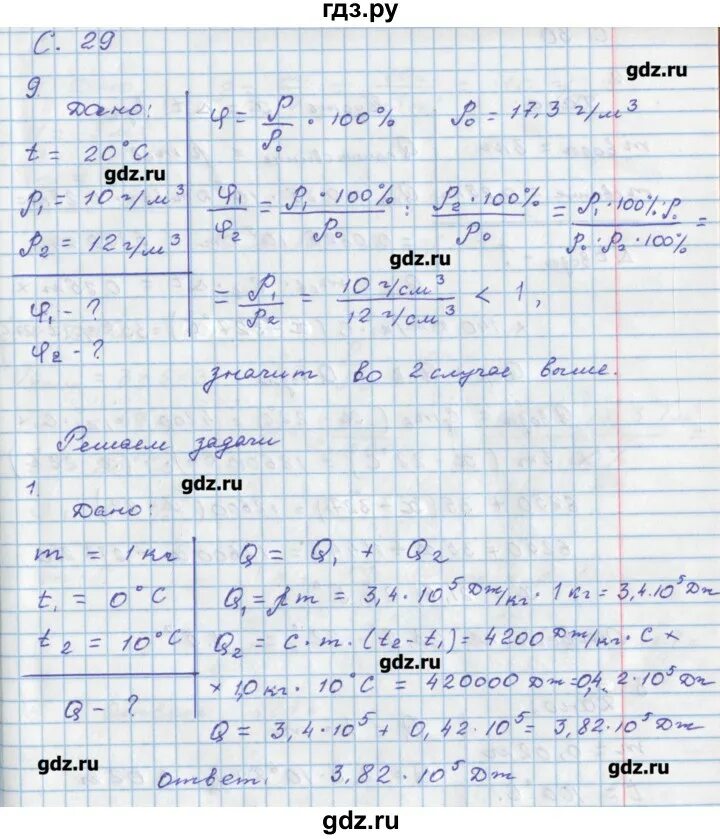 гдз.ру
С. 29
gdz.ru
9.
Дано:
t = 20°C
gdz.ru
ρ₁ = 10 г/м³
ρ₂ = 12 г/м³
φ₁ - ?
φ₂ - ?
φ = ρ/ρ₀ · 100% ρ₀ = 17,3 г/м³
φ₁/φ₂ = ρ₁·100%/ρ₀ : ρ₂·100%/ρ₀ = ρ₁·100%·ρ₀/ρ₀·ρ₂·100% =
gdz.ru
= ρ₁/ρ₂ = 10 г/см³/12 г/см³ < 1,
значит во 2 случае выше.
Решаем задачи
gdz.ru
1.
Дано:
m = 1 кг
t₁ = 0°C
t₂ = 10°C
Q - ?
Q = Q₁ + Q₂
Q₁ = λm = 3,4·10⁵ Дж/кг · 1 кг = 3,4·10⁵ Дж
Q₂ = c·m·(t₂-t₁) = 4200 Дж/кг·C ×
gdz.ru
× 1,0 кг · 10°C = 420000 Дж = 0,4,2·10⁵ Дж
Q = 3,4·10⁵ + 0,42·10⁵ = 3,82·10⁵ Дж
gdz.ru
gdz.ru
ответ: 3,82·10⁵ Дж
gdz.ru